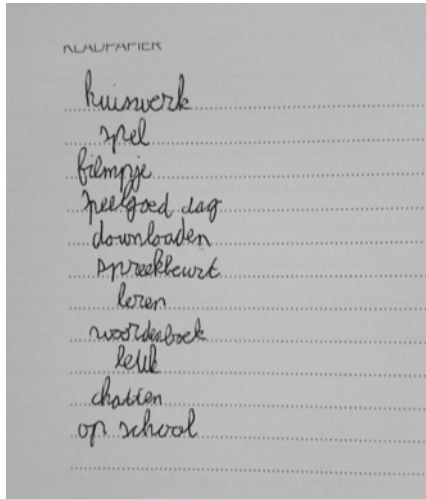 KLADPAPIER
huiswerk
spel
filmpje
speelgoed dag
downloaden
spreekbeurt
leren
woordenboek
leuk
chatten
op school